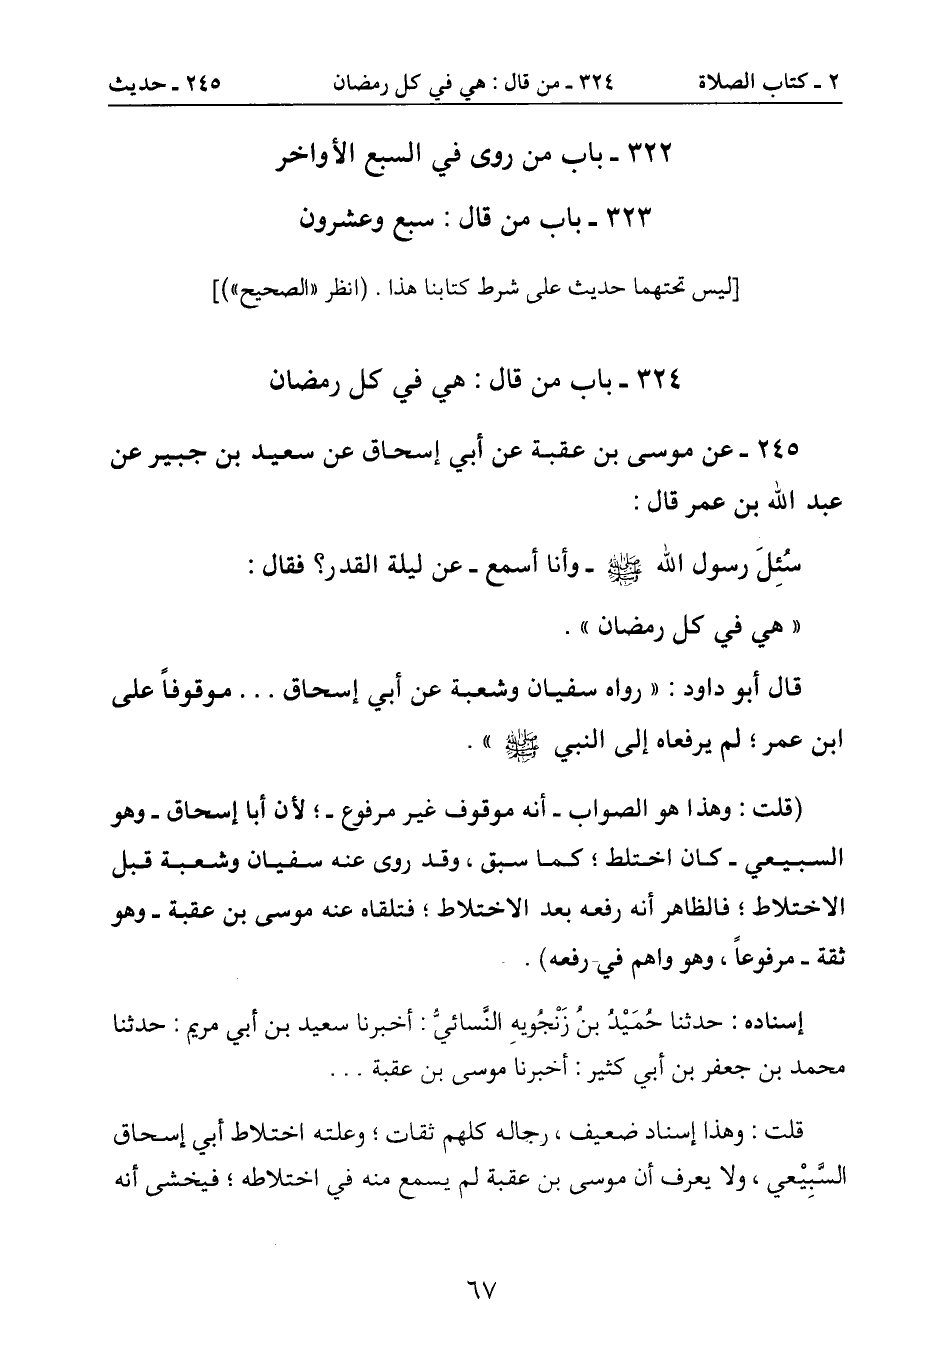 ٢ ـ كتاب الصلاة ٣٢٤ ـ من قال : هي في كل رمضان ٢٤٥ ـ حديث
٣٢٢ ـ باب من روى في السبع الأواخر
٣٢٣ ـ باب من قال : سبع وعشرون
[ليس تحتهما حديث على شرط كتابنا هذا . (انظر «الصحيح»)]
٣٢٤ ـ باب من قال : هي في كل رمضان
٢٤٥ ـ عن موسى بن عقبة عن أبي إسحاق عن سعيد بن جبير عن
عبد الله بن عمر قال :
سُئِلَ رسول الله ﷺ ـ وأنا أسمع ـ عن ليلة القدر؟ فقال :
« هي في كل رمضان » .
قال أبو داود : « رواه سفيان وشعبة عن أبي إسحاق . . . موقوفاً على
ابن عمر ؛ لم يرفعاه إلى النبي ﷺ » .
(قلت : وهذا هو الصواب ـ أنه موقوف غير مرفوع ـ ؛ لأن أبا إسحاق ـ وهو
السبيعي ـ كان اختلط ؛ كما سبق ، وقد روى عنه سفيان وشعبة قبل
الاختلاط ؛ فالظاهر أنه رفعه بعد الاختلاط ؛ فتلقاه عنه موسى بن عقبة ـ وهو
ثقة ـ مرفوعاً ، وهو واهم في رفعه) .
إسناده : حدثنا حُمَيْدُ بنُ زَنْجُويهِ النَّسائيُّ : أخبرنا سعيد بن أبي مريم : حدثنا
محمد بن جعفر بن أبي كثير : أخبرنا موسى بن عقبة . . .
قلت : وهذا إسناد ضعيف ، رجاله كلهم ثقات ؛ وعلته اختلاط أبي إسحاق
السَّبِيْعي ، ولا يعرف أن موسى بن عقبة لم يسمع منه في اختلاطه ؛ فيخشى أنه
٦٧